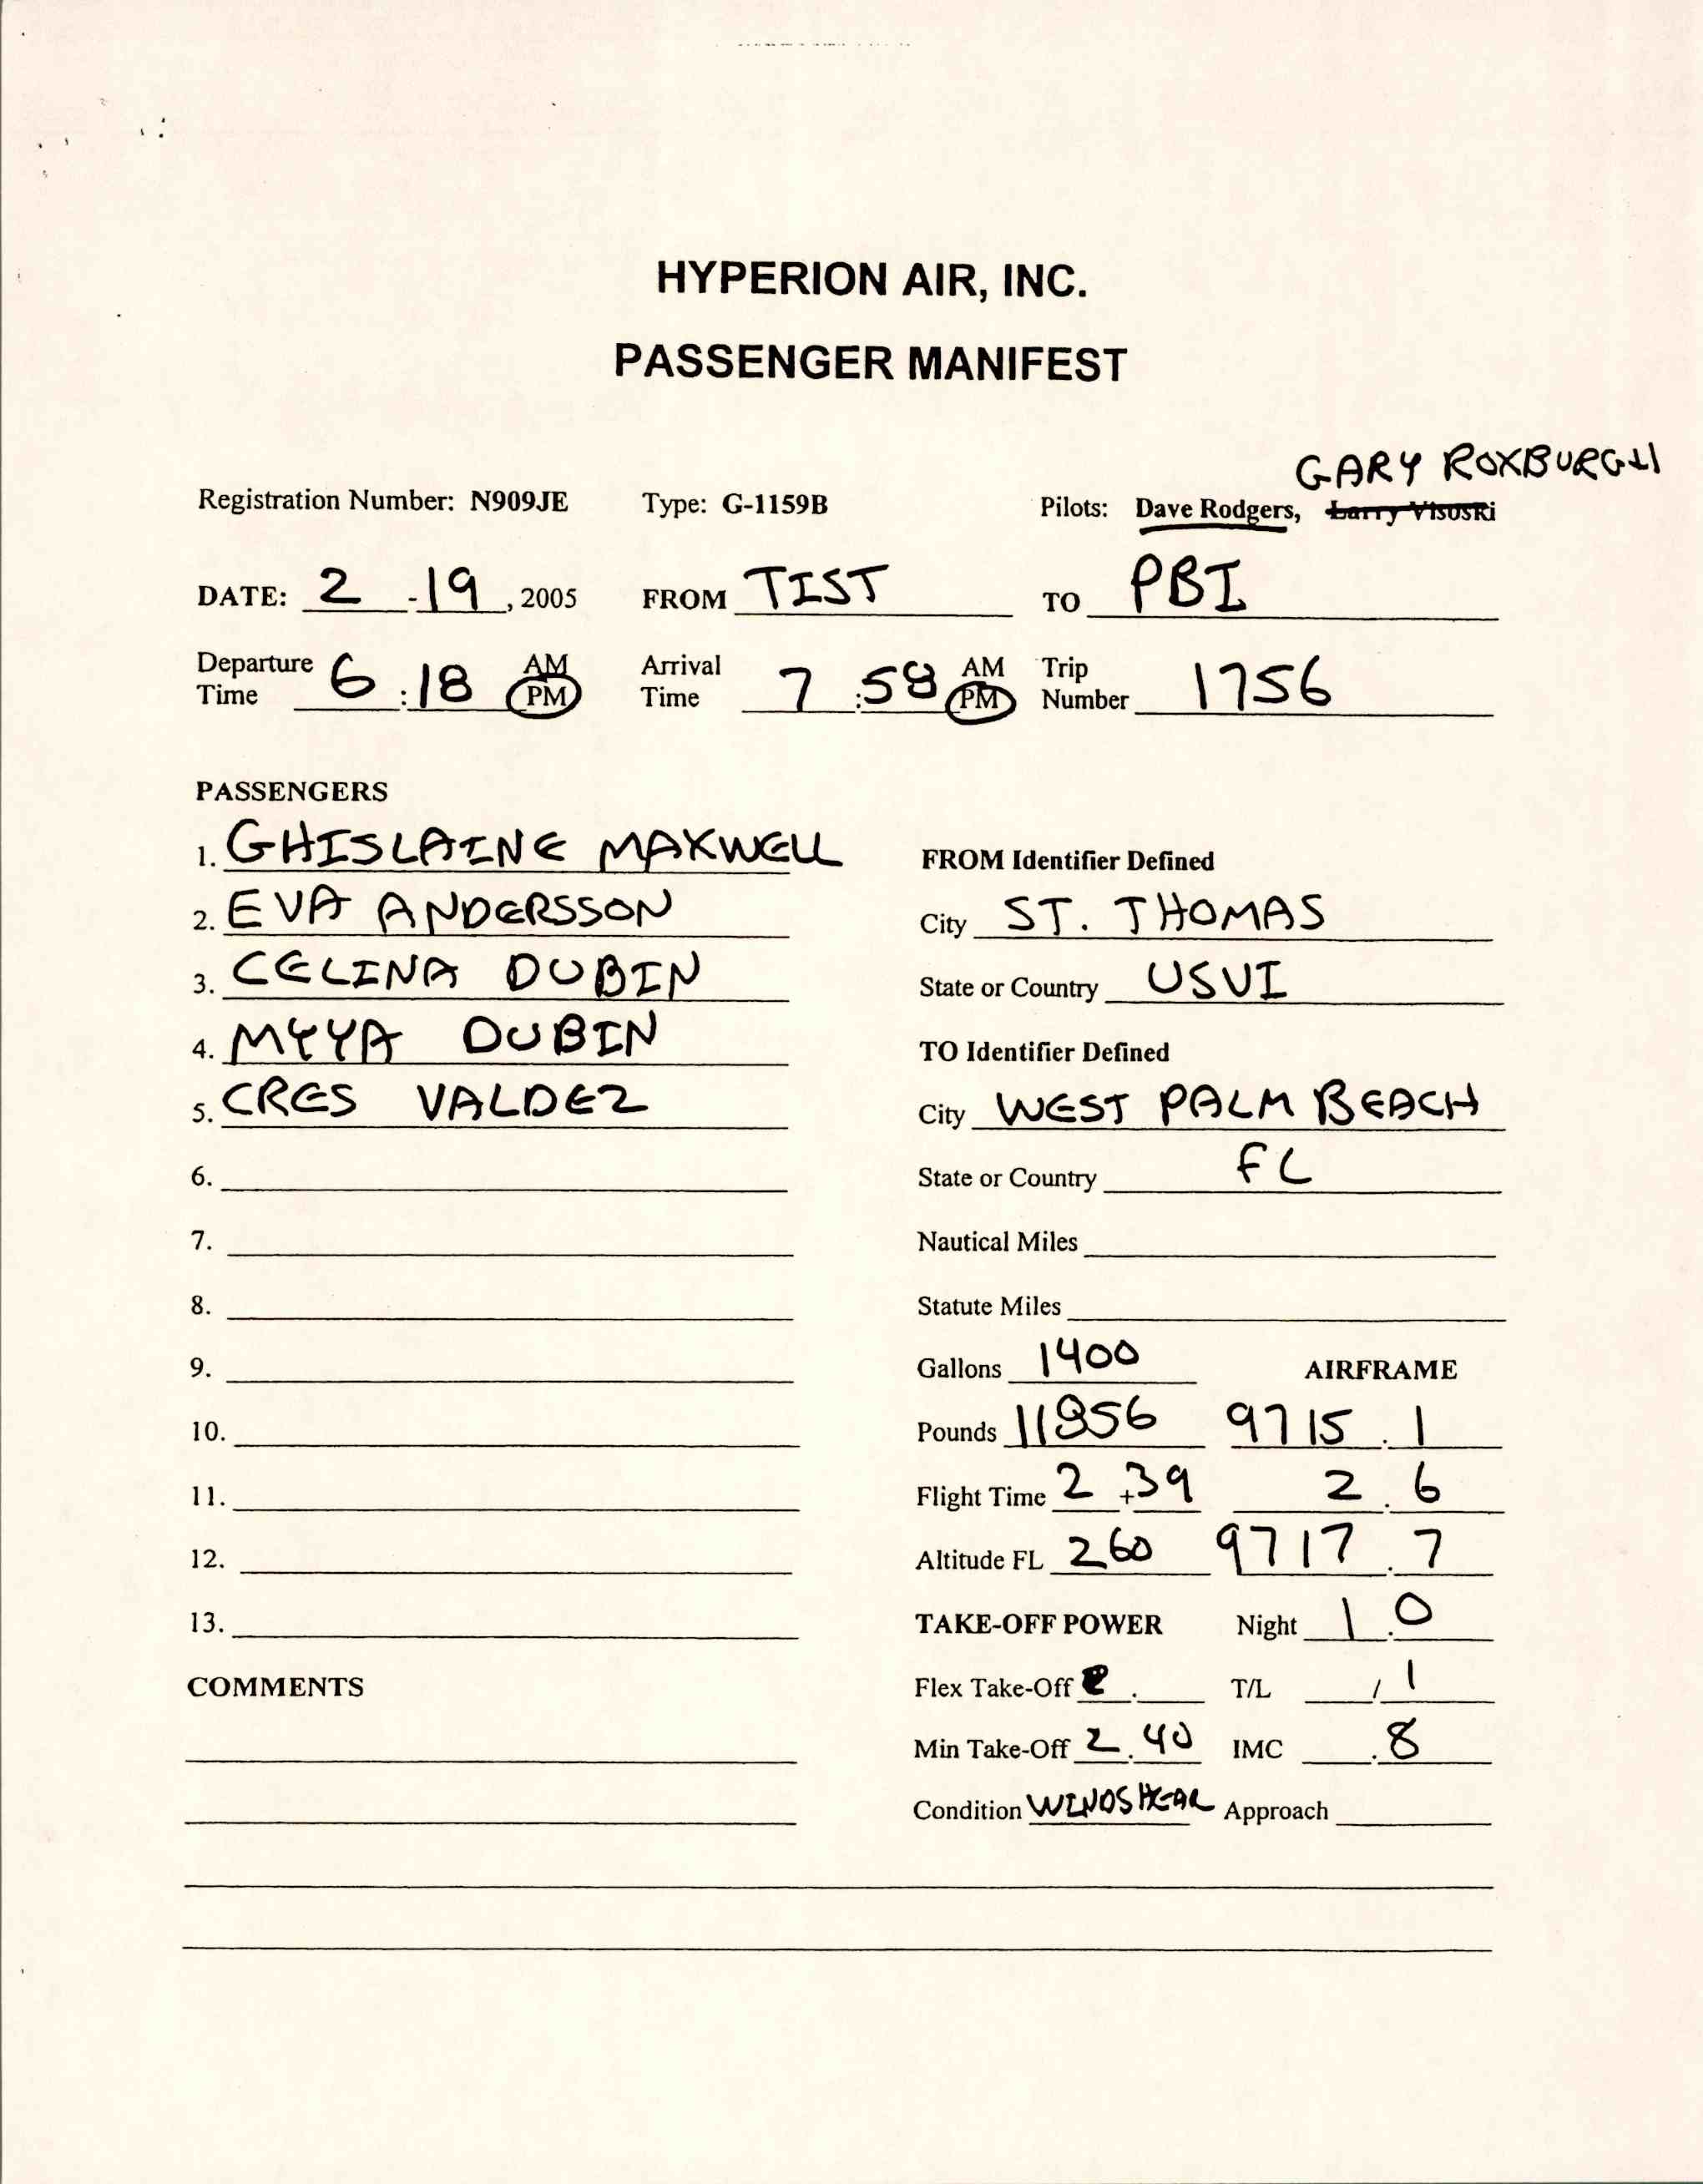 HYPERION AIR, INC.
PASSENGER MANIFEST
GARY ROXBURGH
Registration Number: N909JE Type: G-1159B Pilots: Dave Rodgers, Larry Visoski
DATE: 2 - 19, 2005 FROM TIST TO PBI
Departure Time 6:18 AM PM Arrival Time 7:58 AM PM Trip Number 1756
PASSENGERS
1. GHISLAINE MAXWELL
FROM Identifier Defined
2. EVA ANDERSSON
City ST. THOMAS
3. CELINA DUBIN
State or Country USVI
4. MYYA DUBIN
TO Identifier Defined
5. CRES VALDEZ
City WEST PALM BEACH
6.
State or Country FL
7.
Nautical Miles
8.
Statute Miles
9.
Gallons 1400 AIRFRAME
10.
Pounds 11856 9715.1
11.
Flight Time 2+39 2.6
12.
Altitude FL 260 9717.7
13.
TAKE-OFF POWER Night 1.0
COMMENTS
Flex Take-Off . T/L / 1
Min Take-Off 2.40 IMC .8
Condition WINDSHEAR Approach